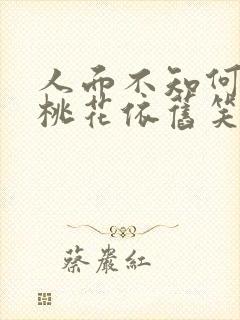 人面不知何
桃花依舊笑
蔡巖紅